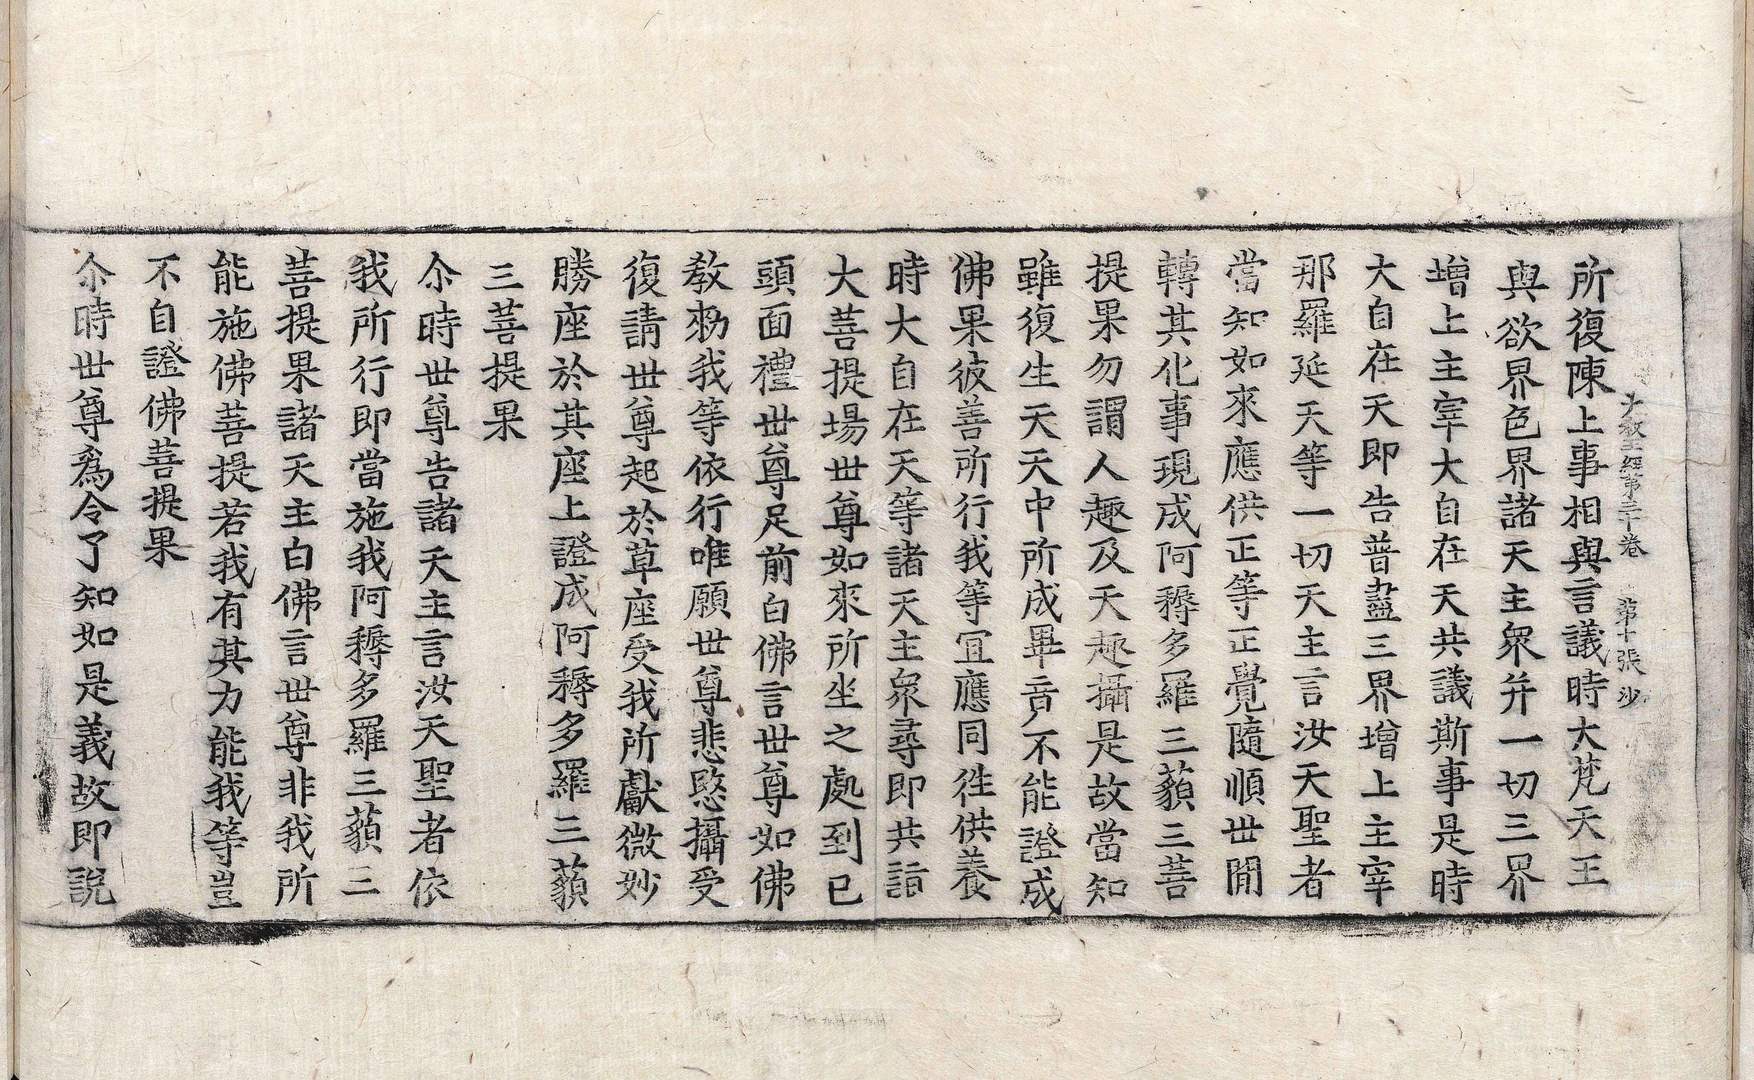 大教王經第三十卷　第十張　沙
所復陳上事相與言議時大梵天王
與欲界色界諸天主衆并一切三界
增上主宰大自在天共議斯事是時
大自在天即告普盡三界增上主宰
那羅延天等一切天主言汝天聖者
當知如來應供正等正覺隨順世間
轉其化事現成阿耨多羅三藐三菩
提果勿謂人趣及天趣攝是故當知
雖復生天天中所成畢竟不能證成
佛果彼善所行我等宜應同徃供養
時大自在天等諸天主衆尋即共詣
大菩提場世尊如來所坐之處到已
頭面禮世尊足前白佛言世尊如佛
教勑我等依行唯願世尊悲愍攝受
復請世尊起於草座受我所獻微妙
勝座於其座上證成阿耨多羅三藐
三菩提果
尒時世尊告諸天主言汝天聖者依
我所行即當施我阿耨多羅三藐三
菩提果諸天主白佛言世尊非我所
能施佛菩提若我有其力能我等豈
不自證佛菩提果
尒時世尊爲令了知如是義故即說